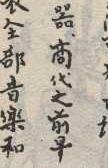 器、商代之前早
全部音樂和